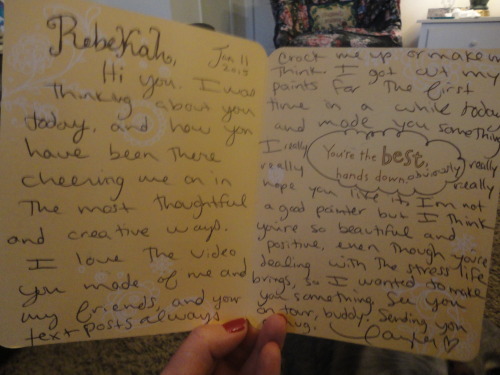 Rebekah,
Jan 11
2015
Hi you. I was
thinking about you
today, and how you
have been there
cheering me on in
the most thoughtful
and creative ways.
I love the video
you made of me and
my friends, and your
text posts always
crack me up or make me
think. I got out my
paints for the first
time in a while today
and made you something
You're the best,
hands down, obviously
I really
really really
really
hope you like it, I'm not
a good painter but I think
you're so beautiful and
positive, even though you're
dealing with the stress life
brings, so I wanted to make
you something. See you
on tour, buddy. Sending you
hug.